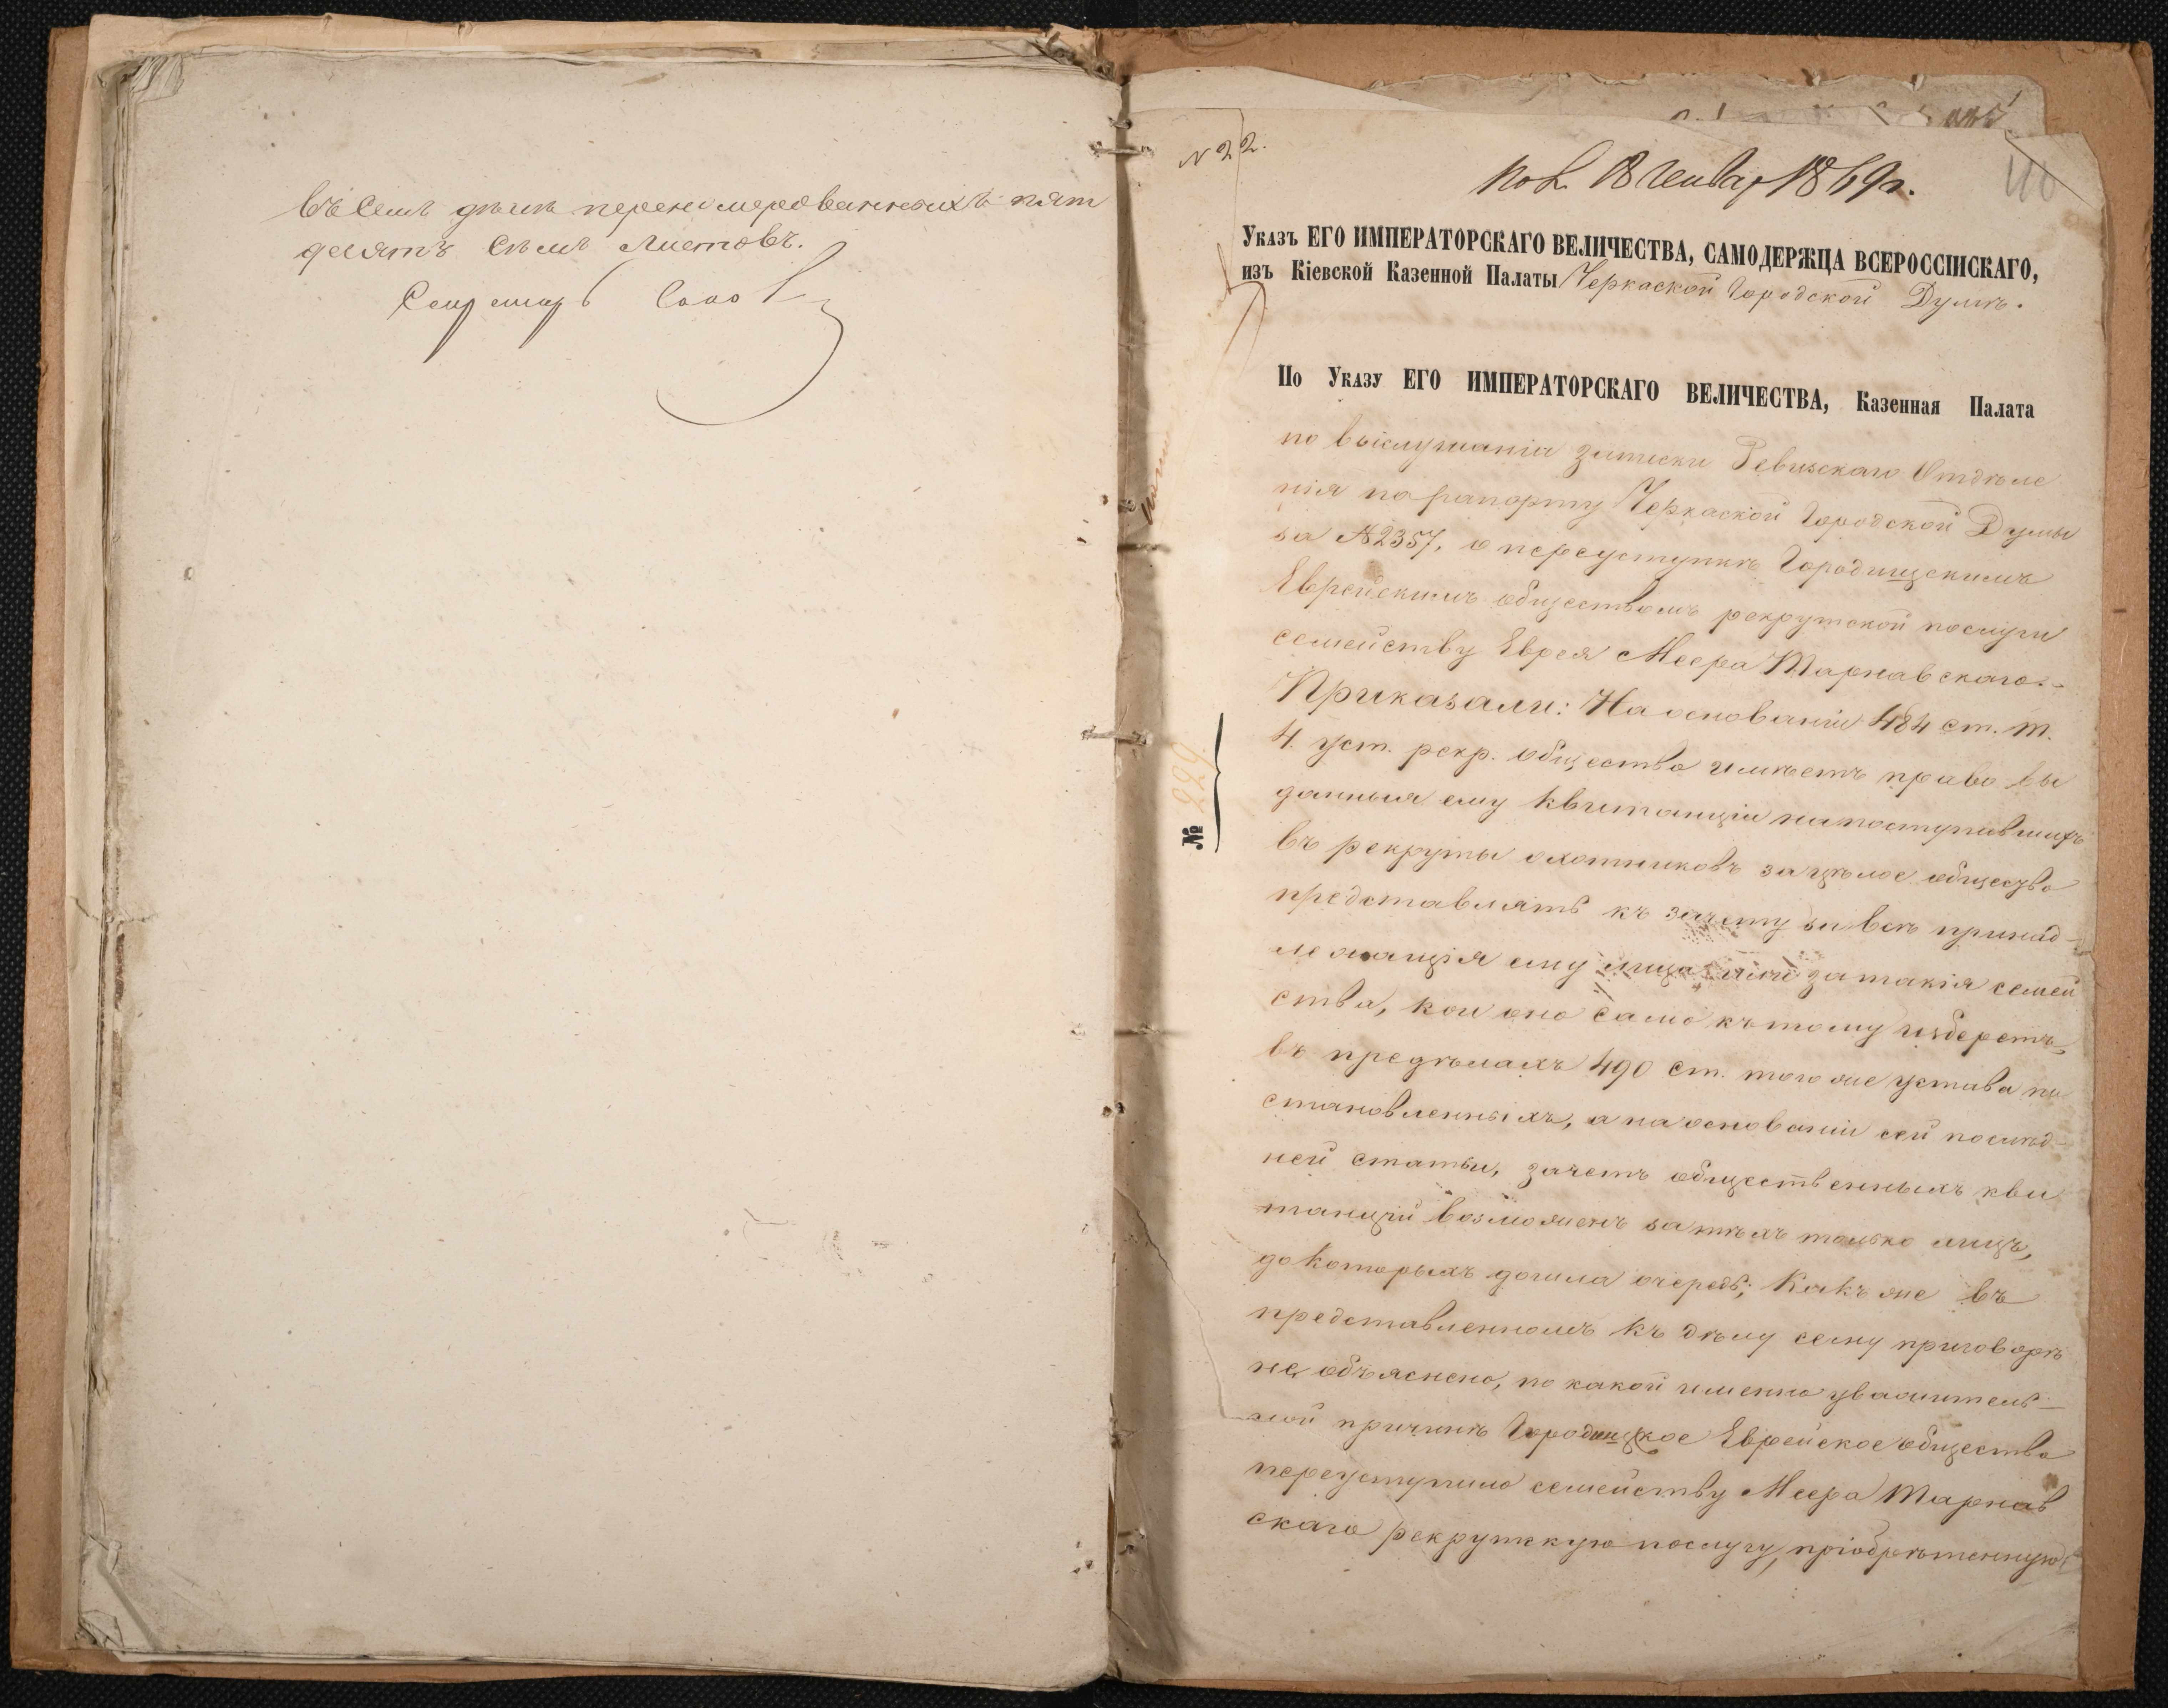 въ семъ дѣлѣ перенумерованныхъ пят
десятъ семь листовъ.
Секретарь
N 22.
Пол. 18 Генвар 1869 г.
110
Указъ ЕГО ИМПЕРАТОРСКАГО ВЕЛИЧЕСТВА, САМОДЕРЖЦА ВСЕРОССІЙСКАГО,
изъ Кіевской Казенной Палаты Черкаской Городской Думѣ.
По Указу ЕГО ИМПЕРАТОРСКАГО ВЕЛИЧЕСТВА, Казенная Палата
по выслушаніи записки Ревизскаго Отдѣле
нія по рапорту Черкаской Городской Думы
за №2357, о переуступкѣ Городищскимъ
Еврейскимъ обществомъ рекрутской послуги
семейству Еврея Меера Тарнавскаго.
Приказали: На основаніи 484 ст. Т.
4. уст. рекр. общество имѣетъ право вы
данныя ему квитанціи на поступившихъ
въ рекруты охотниковъ за цѣлое общество
представлять къ зачету за всѣ принад-
лежащія ему лица или за такія семей
ства, кои оно само къ тому изберетъ,
въ предѣлахъ 490 ст. того же устава по
становленныхъ, а на основаніи сей послѣд-
ней статьи, зачетъ общественныхъ кви
танцій возможенъ за тѣхъ только лицъ,
до которыхъ дошла очередь; Какъ же въ
представленномъ къ дѣлу сему приговорѣ
не объяснено, по какой именно уважитель-
ной причинѣ Городищское Еврейское общество
переуступило семейству Меера Тарнав
скаго рекрутскую послугу, пріобрѣтенную
№ 229